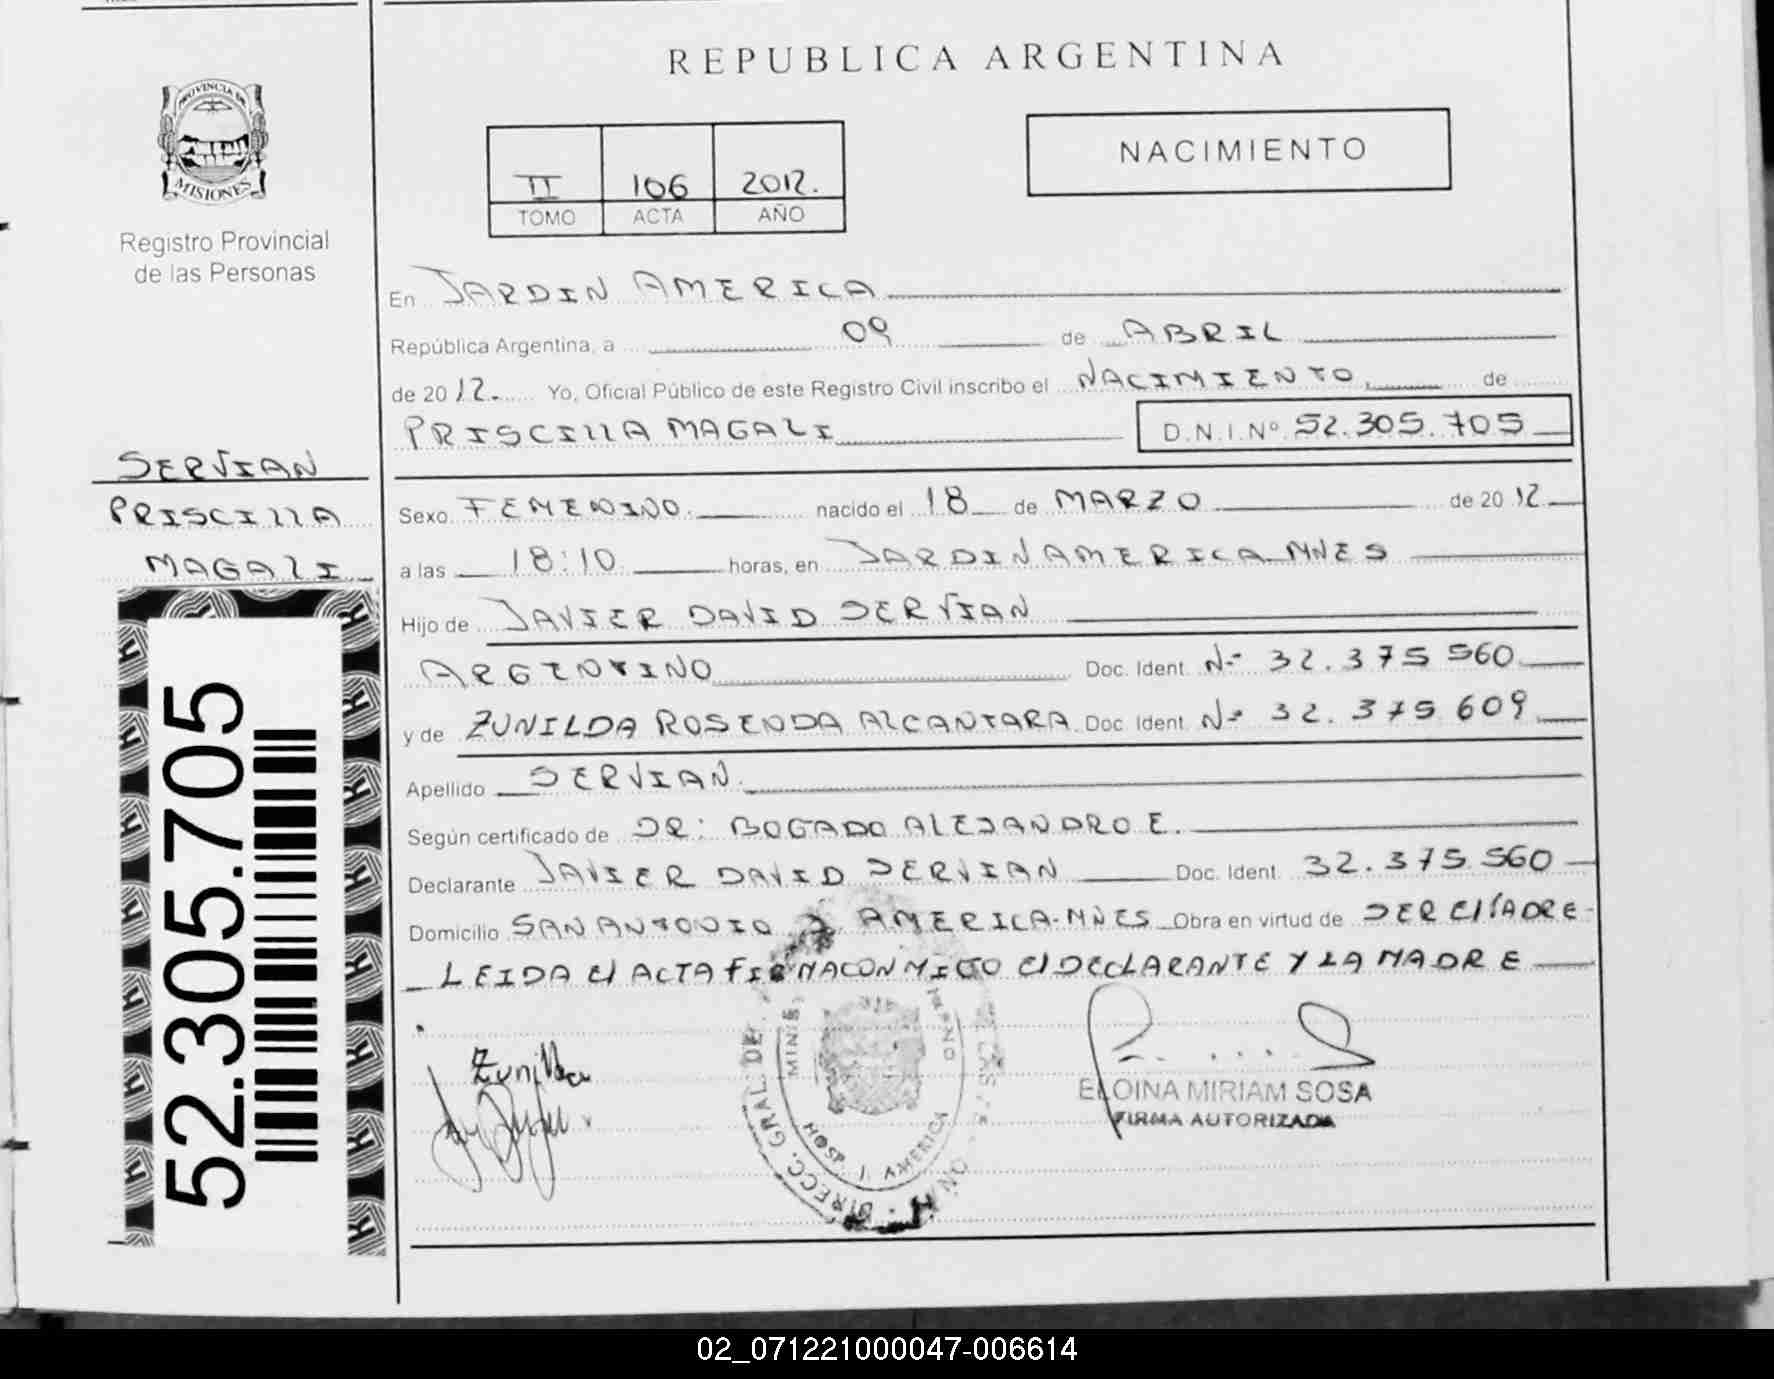 REPUBLICA ARGENTINA
PROVINCIA DE
MISIONES
Registro Provincial
de las Personas
II 106 2012.
TOMO ACTA AÑO
NACIMIENTO
En JARDIN AMERICA
República Argentina, a 09 de ABRIL
de 2012. Yo, Oficial Público de este Registro Civil inscribo el NACIMIENTO de
PRISCILLA MAGALI D.N.I.Nº 52.305.705
SERVIAN
PRISCILLA
MAGALI
Sexo FEMENINO. nacido el 18 de MARZO de 2012
a las 18:10 horas, en JARDIN AMERICA MNES
Hijo de JAVIER DAVID SERVIAN
ARGENTINO Doc. Ident. Nº 32.375 560
y de ZUNILDA ROSENDA ALCANTARA Doc. Ident. Nº 32.375 609
Apellido SERVIAN.
Según certificado de DR: BOGADO ALEJANDRO E.
Declarante JAVIER DAVID SERVIAN Doc. Ident. 32.375.560
Domicilio SAN ANTONIO J AMERICA-MNES Obra en virtud de SER El PADRE-
LEIDA el ACTA FIRMA CON MIGO El DECLARANTE Y LA MADRE
52.305.705
Zunilda
DIRECC. GRAL DE
HOSP J AMERICA
ELOINA MIRIAM SOSA
FIRMA AUTORIZADA
02_071221000047-006614